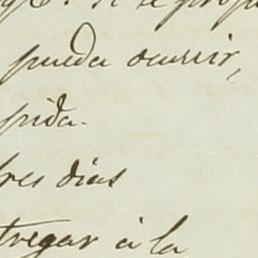 si se prop
pueda ocurrir,
pida.
tres dias
tregar á la